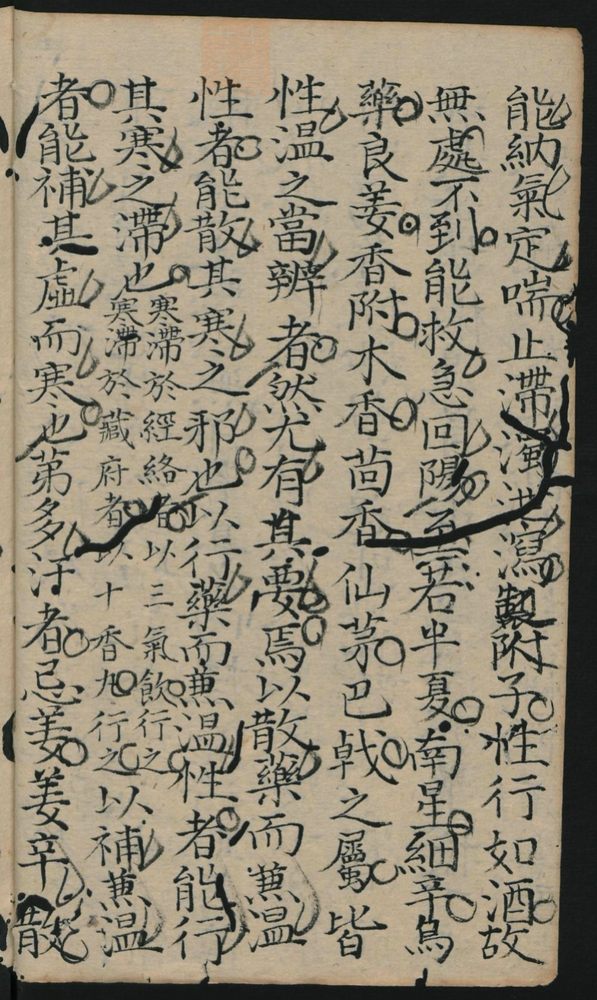 能納氣定喘止滯濁泄瀉製附子性行如酒故
無處不到能救急回陽至若半夏南星細辛烏
藥良姜香附木香茴香仙茅巴戟之屬皆
性溫之當辨者然尤有其要焉以散藥而兼溫
性者能散其寒之邪也以行藥而兼溫性者能行
其寒之滯也寒滯於經絡者以三氣飲行之
寒滯於藏府者以十香丸行之以補兼溫
者能補其虛而寒也第多汗者忌姜姜辛散